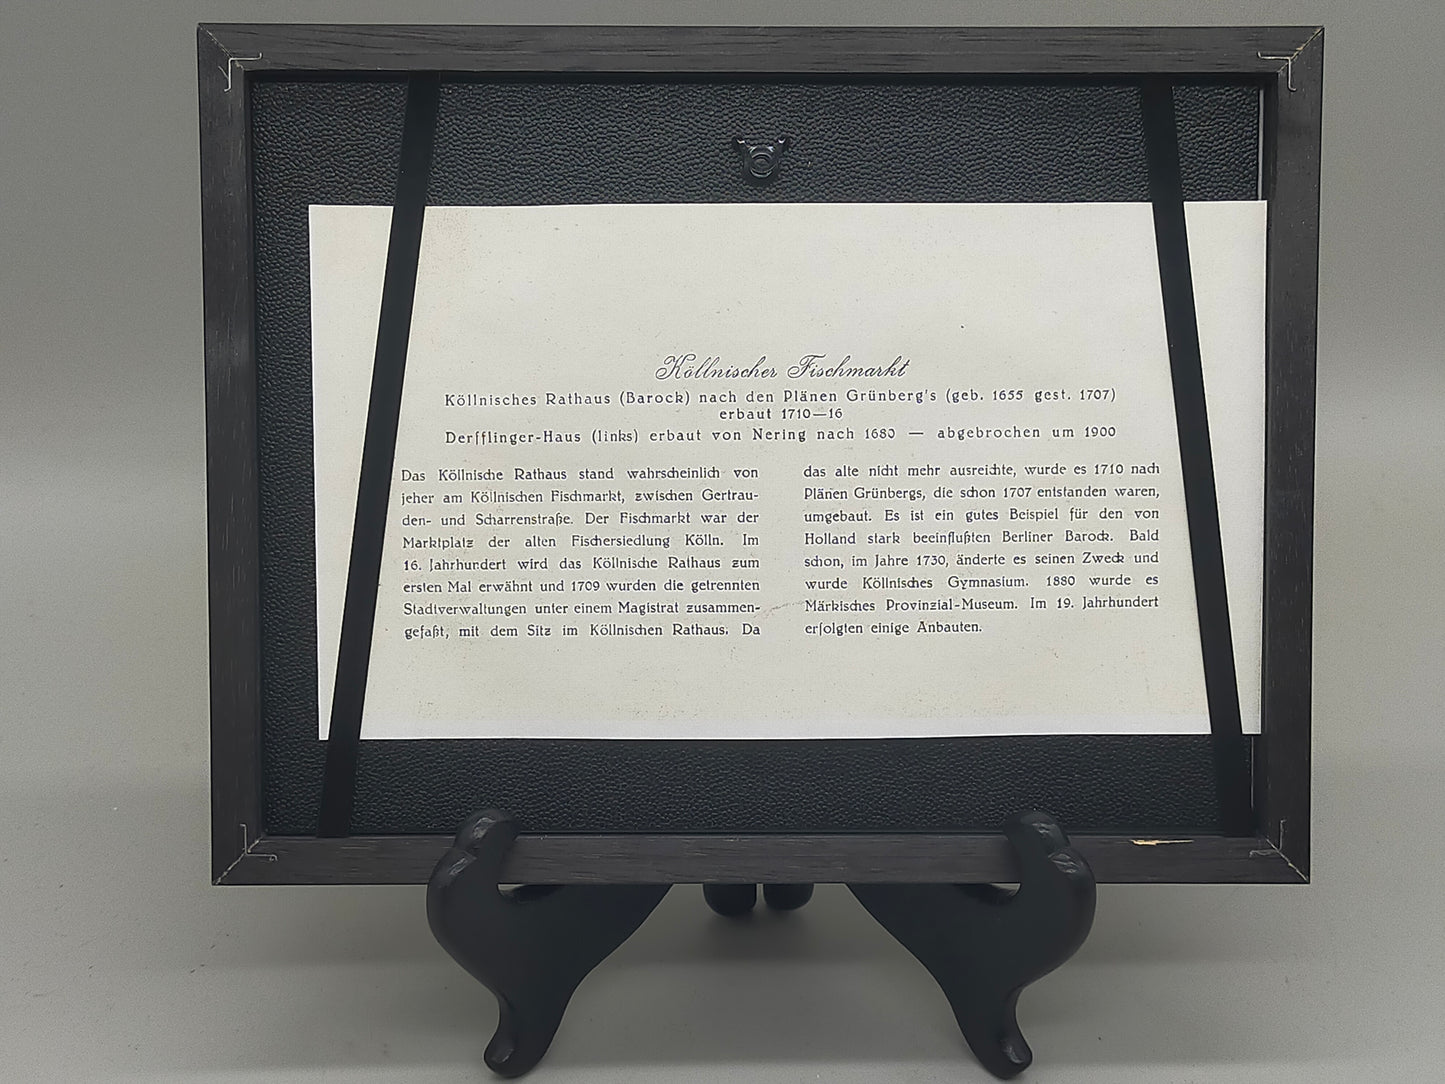 Köllnischer Fischmarkt
Köllnisches Rathaus (Barock) nach den Plänen Grünberg's (geb. 1655 gest. 1707)
erbaut 1710—16
Derfflinger-Haus (links) erbaut von Nering nach 1680 — abgebrochen um 1900
Das Köllnische Rathaus stand wahrscheinlich von
jeher am Köllnischen Fischmarkt, zwischen Gertrau-
den- und Scharrenstraße. Der Fischmarkt war der
Marktplatz der alten Fischersiedlung Kölln. Im
16. Jahrhundert wird das Köllnische Rathaus zum
ersten Mal erwähnt und 1709 wurden die getrennten
Stadtverwaltungen unter einem Magistrat zusammen-
gefaßt, mit dem Sitz im Köllnischen Rathaus. Da
das alte nicht mehr ausreichte, wurde es 1710 nach
Plänen Grünbergs, die schon 1707 entstanden waren,
umgebaut. Es ist ein gutes Beispiel für den von
Holland stark beeinflußten Berliner Barock. Bald
schon, im Jahre 1730, änderte es seinen Zweck und
wurde Köllnisches Gymnasium. 1880 wurde es
Märkisches Provinzial-Museum. Im 19. Jahrhundert
erfolgten einige Anbauten.